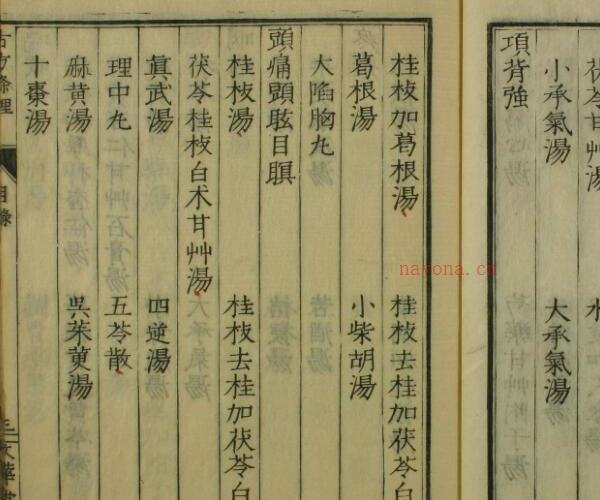 茯苓甘艸湯
小承氣湯 大承氣湯
項背強
桂枝加葛根湯 桂枝去桂加茯苓白
葛根湯 小柴胡湯
大陷胸丸
頭痛頭眩目瞑
桂枝湯 桂枝去桂加茯苓白
茯苓桂枝白朮甘艸湯
眞武湯 四逆湯
理中丸 五苓散
麻黃湯 吳茱萸湯
十棗湯
目錄
nayona.cn